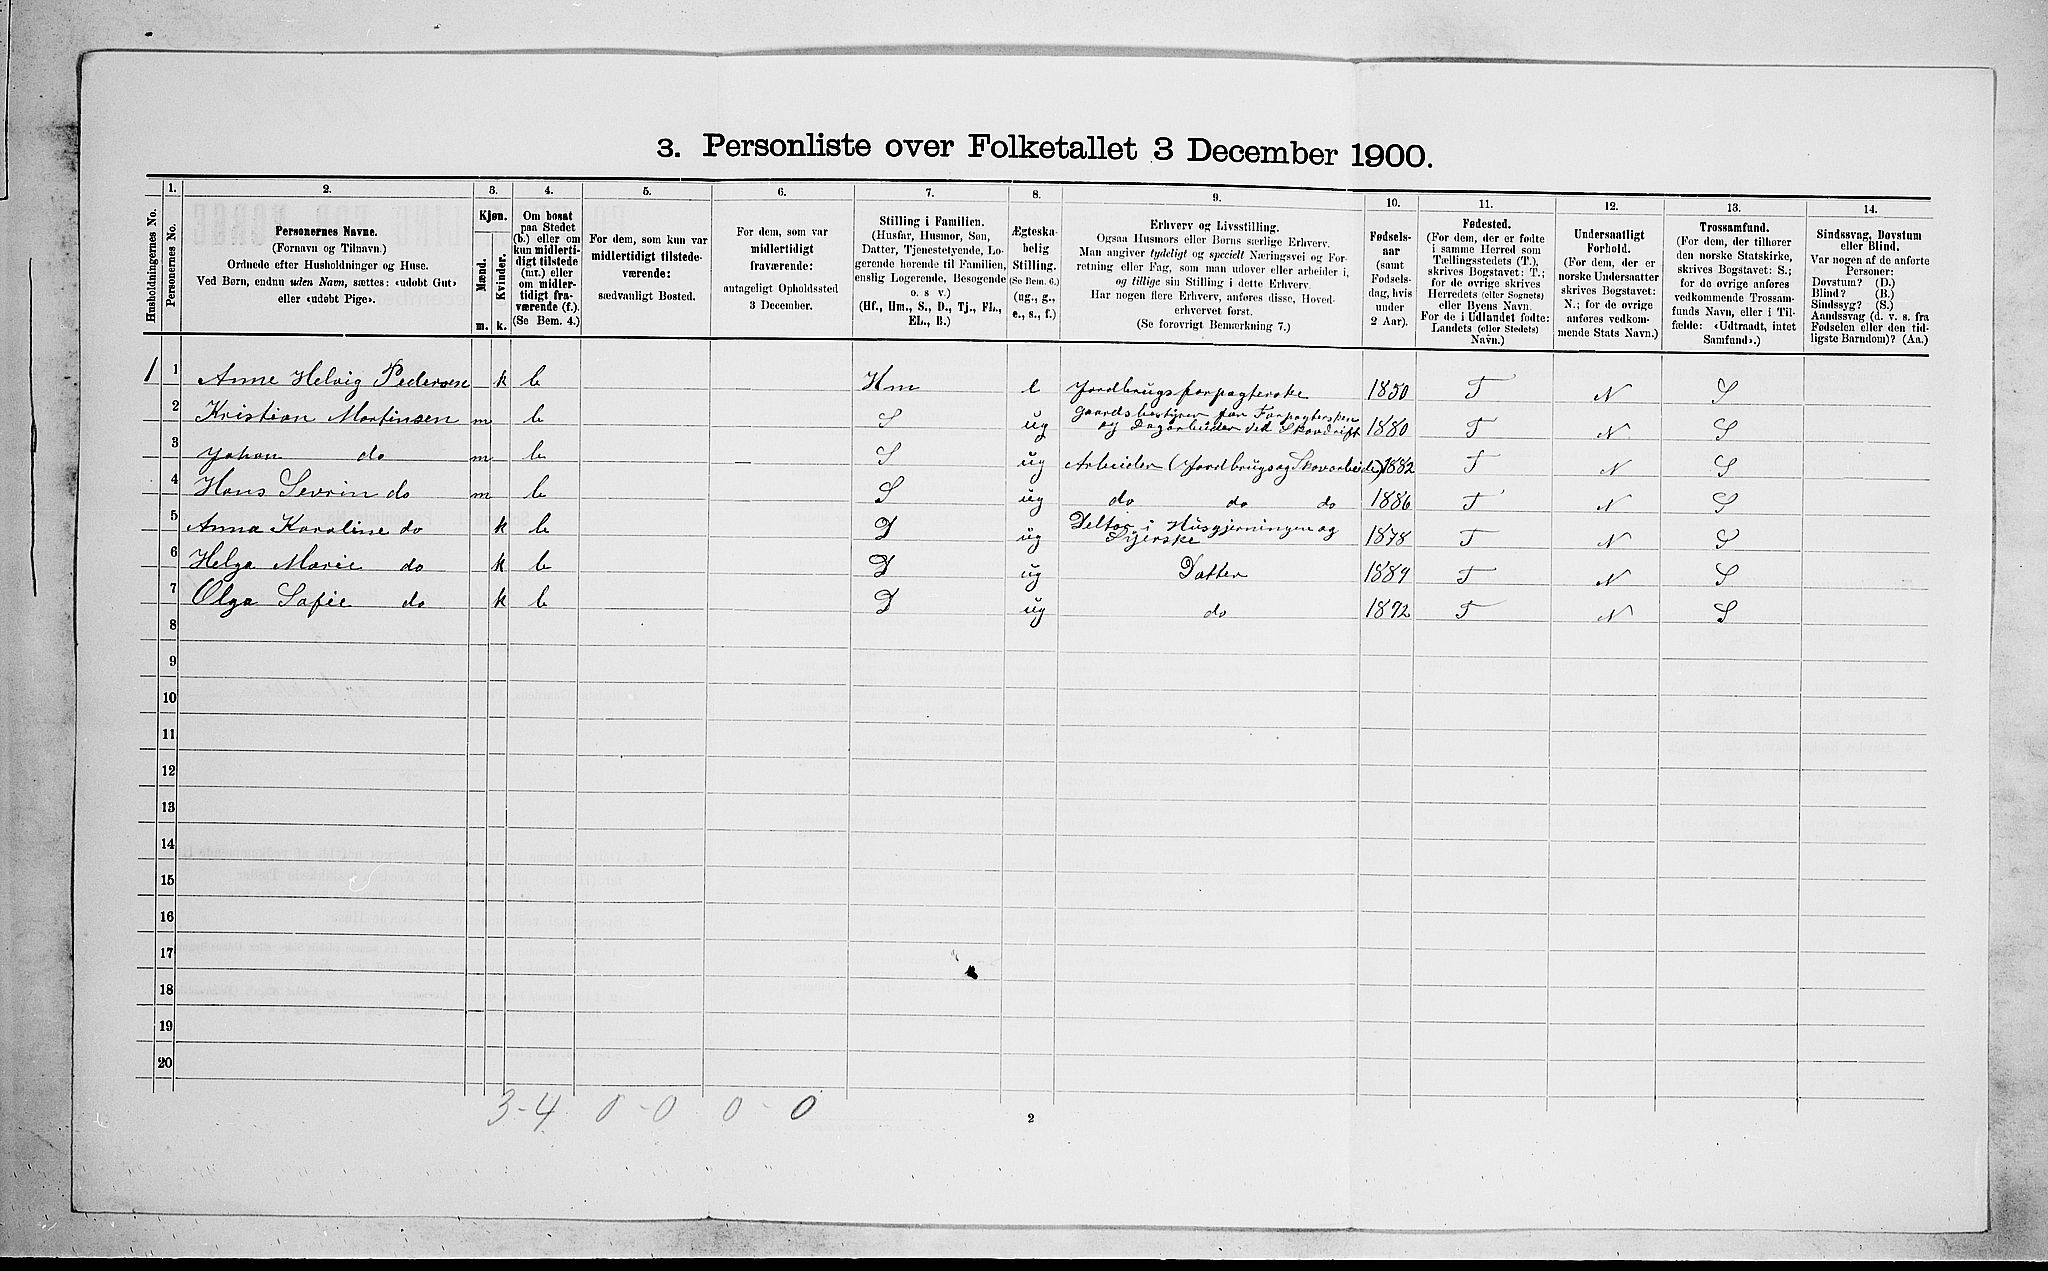 3. Personliste over Folketallet 3 December 1900.
Husholdningernes No.
1.
Personernes No.
2.
Personernes Navne.
(Fornavn og Tilnavn.)
Ordnede efter Husholdninger og Huse.
Ved Børn, endnu uden Navn, sættes: «udøbt Gut»
eller «udøbt Pige».
3.
Kjøn.
Mænd.
Kvinder.
m. k.
4.
Om bosat
paa Stedet
(b.) eller om
kun midlerti-
digt tilstede
(mt.) eller
om midler-
tidigt fra-
værende (f.).
(Se Bem. 4.)
5.
For dem, som kun var
midlertidigt tilstede-
værende:
sædvanligt Bosted.
6.
For dem, som var
midlertidigt
fraværende:
antageligt Opholdssted
3 December.
7.
Stilling i Familien.
(Husfar, Husmor, Søn,
Datter, Tjenestetyende, Lo-
gerende hørende til Familien,
enslig Logerende, Besøgende
o. s v.)
(Hf., Hm., S., D., Tj., FL.,
EL., B.)
8.
Ægteska-
belig
Stilling.
(Se Bem. 6.)
(ug., g.,
e., s., f.)
9.
Erhverv og Livsstilling.
Ogsaa Husmors eller Børns særlige Erhverv.
Man angiver tydeligt og specielt Næringsvei og For-
retning eller Fag, som man udøver eller arbeider i,
og tillige sin Stilling i dette Erhverv.
Har nogen flere Erhverv, anføres disse, Hoved-
erhvervet først.
(Se forøvrigt Bemærkning 7.)
10.
Fødsels-
aar
(samt
Fødsels-
dag, hvis
under
2 Aar).
11.
Fødested.
(For dem, der er fødte
i samme Herred som
Tællingsstedets (T.),
skrives Bogstavet: T.;
for de øvrige skrives
Herredets (eller Sognets)
eller Byens Navn.
For de i Udlandet fødte:
Landets (eller Stedets)
Navn.)
12.
Undersaatligt
Forhold.
(For dem, der er
norske Undersaatter
skrives Bogstavet:
N.; for de øvrige
anføres vedkom-
mende Stats Navn.)
13.
Trossamfund.
(For dem, der tilhører
den norske Statskirke,
skrives Bogstavet: S.;
for de øvrige anføres
vedkommende Trossam-
funds Navn, eller i Til-
fælde: «Udtraadt, intet
Samfund».)
14.
Sindssvag, Døvstum
eller Blind.
Var nogen af de anførte
Personer:
Døvstum? (D.)
Blind? (B.)
Sindssyg? (S.)
Aandssvag (d. v. s. fra
Fødselen eller den tid-
ligste Barndom)? (Aa.)
1 1 Anne Helvig Pedersen k b Hm e Jordbrugsforpagterske 1850 T N S
2 Kristian Martinsen m b S ug Gaardsbestyrer for Forpagtersken
og Dagarbeider ved Skovdrift 1880 T N S
3 Johan do m b S ug Arbeider (Jordbrugs og Skovarbeide) 1882 T N S
4 Hans Sevrin do m b S ug do do do 1886 T N S
5 Anna Karoline do k b D ug Deltar i Husgjerningen og
Syerske 1878 T N S
6 Helga Marie do k b D ug Datter 1889 T N S
7 Olga Sofie do k b D ug do 1892 T N S
8
9
10
11
12
13
14
15
16
17
18
19
20
3-4 0-0 0-0
2